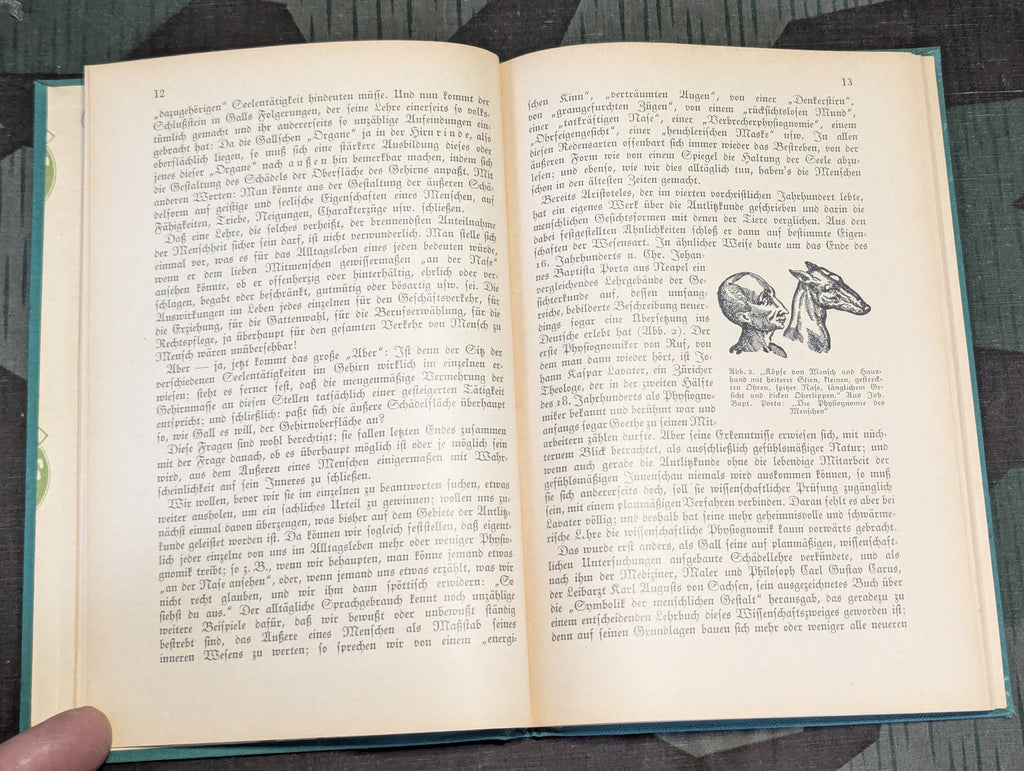 12
„dazugehörigen“ Seelentätigkeit hindeuten müsse. Und nun kommt der
Schlußstein in Galls Folgerungen, der seine Lehre einerseits so volks-
tümlich gemacht und ihr andererseits so unzählige Anfeindungen ein-
gebracht hat: Da die Gallschen „Organe“ ja in der Hirnrinde, also
oberflächlich liegen, so muß sich eine stärkere Ausbildung dieses oder
jenes dieser „Organe“ nach außen hin bemerkbar machen, indem sich
die Gestaltung des Schädels der Oberfläche des Gehirns anpaßt. Mit
anderen Worten: Man könnte aus der Gestaltung der äußeren Schä-
delform auf geistige und seelische Eigenschaften eines Menschen, auf
Fähigkeiten, Triebe, Neigungen, Charakterzüge usw. schließen.
Daß eine Lehre, die solches verheißt, der brennendsten Anteilnahme
der Menschheit sicher sein darf, ist nicht verwunderlich. Man stelle sich
einmal vor, was es für das Alltagsleben eines jeden bedeuten würde,
wenn er dem lieben Mitmenschen gewissermaßen „an der Nase“
ansehen könnte, ob er offenherzig oder hinterhältig, ehrlich oder ver-
schlagen, begabt oder beschränkt, gutmütig oder bösartig usw. sei. Die
Auswirkungen im Leben jedes einzelnen für den Geschäftsverkehr, für
die Erziehung, für die Gattenwahl, für die Berufserwählung, für die
Rechtspflege, ja überhaupt für den gesamten Verkehr von Mensch zu
Mensch wären unübersehbar!
Aber — ja, jetzt kommt das große „Aber“: Ist denn der Sitz der
verschiedenen Seelentätigkeiten im Gehirn wirklich im einzelnen er-
wiesen; steht es ferner fest, daß die mengenmäßige Vermehrung der
Gehirnmasse an diesen Stellen tatsächlich einer gesteigerten Tätigkeit
entspricht; und schließlich: paßt sich die äußere Schädelfläche überhaupt
so, wie Gall es will, der Gehirnoberfläche an?
Diese Fragen sind wohl berechtigt; sie fallen letzten Endes zusammen
mit der Frage danach, ob es überhaupt möglich ist oder je möglich sein
wird, aus dem Äußeren eines Menschen einigermaßen mit Wahr-
scheinlichkeit auf sein Inneres zu schließen.
Wir wollen, bevor wir sie im einzelnen zu beantworten suchen, etwas
weiter ausholen, um ein sachliches Urteil zu gewinnen; wollen uns zu-
nächst einmal davon überzeugen, was bisher auf dem Gebiete der Antlitz-
kunde geleistet worden ist. Da können wir sogleich feststellen, daß eigent-
lich jeder einzelne von uns im Alltagsleben mehr oder weniger Physio-
gnomik treibt; so z. B., wenn wir behaupten, man könne jemand etwas
„an der Nase ansehen“, oder, wenn jemand uns etwas erzählt, was wir
nicht recht glauben, und wir ihm dann spöttisch erwidern: „So
siehst du aus.“ Der alltägliche Sprachgebrauch kennt noch unzählige
weitere Beispiele dafür, daß wir bewußt oder unbewußt ständig
bestrebt sind, das Äußere eines Menschen als Maßstab seines
inneren Wesens zu werten; so sprechen wir von einem „energi-
13
schen Kinn“, „verträumten Augen“, von einer „Denkerstirn“,
von „grangefurchten Zügen“, von einem „rücksichtslosen Mund“,
einer „tatkräftigen Nase“, einer „Verbrecherphysiognomie“, einem
„Ohrfeigengesicht“, einer „heuchlerischen Maske“ usw. In allen
diesen Redensarten offenbart sich immer wieder das Bestreben, von der
äußeren Form wie von einem Spiegel die Haltung der Seele abzu-
lesen; und ebenso, wie wir dies alltäglich tun, haben's die Menschen
schon in den ältesten Zeiten gemacht.
Bereits Aristoteles, der im vierten vorchristlichen Jahrhundert lebte,
hat ein eigenes Werk über die Antlitzkunde geschrieben und darin die
menschlichen Gesichtsformen mit denen der Tiere verglichen. Aus den
dabei festgestellten Ähnlichkeiten schloß er dann auf bestimmte Eigen-
schaften der Wesensart. In ähnlicher Weise baute um das Ende des
16. Jahrhunderts n. Chr. Johan-
nes Baptista Porta aus Neapel ein
vergleichendes Lehrgebäude der Ge-
sichterkunde auf, dessen umfang-
reiche, bebilderte Beschreibung neuer-
dings sogar eine Übersetzung ins
Deutsche erlebt hat (Abb. 2). Der
erste Physiognomiker von Ruf, von
dem man dann wieder hört, ist Jo-
hann Kaspar Lavater, ein Züricher
Theologe, der in der zweiten Hälfte
des 18. Jahrhunderts als Physiogno-
miker bekannt und berühmt war und
anfangs sogar Goethe zu seinen Mit-
arbeitern zählen durfte. Aber seine Erkenntnisse erwiesen sich, mit nüch-
ternem Blick betrachtet, als ausschließlich gefühlsmäßiger Natur; und
wenn auch gerade die Antlitzkunde ohne die lebendige Mitarbeit der
gefühlsmäßigen Innenschau niemals wird auskommen können, so muß
sie sich andererseits doch, soll sie wissenschaftlicher Prüfung zugänglich
sein, mit einem planmäßigen Verfahren verbinden. Daran fehlt es aber bei
Lavater völlig; und deshalb hat seine mehr geheimnisvolle und schwärme-
rische Lehre die wissenschaftliche Physiognomik kaum vorwärts gebracht.
Das wurde erst anders, als Gall seine auf planmäßigen, wissenschaft-
lichen Untersuchungen aufgebaute Schädellehre verkündete, und als
nach ihm der Mediziner, Maler und Philosoph Carl Gustav Carus,
der Leibarzt Karl Augusts von Sachsen, sein ausgezeichnetes Buch über
die „Symbolik der menschlichen Gestalt“ herausgab, das geradezu zu
einem entscheidenden Lehrbuch dieses Wissenschaftszweiges geworden ist;
denn auf seinen Grundlagen bauen sich mehr oder weniger alle neueren
Abb. 2. „Köpfe von Mensch und Haus-
hund mit heiterer Stirn, kleinen, gestreck-
ten Ohren, spitzer Nase, länglichem Ge-
sicht und dicken Oberlippen.“ Aus Joh.
Bapt. Porta: „Die Physiognomie des
Menschen“